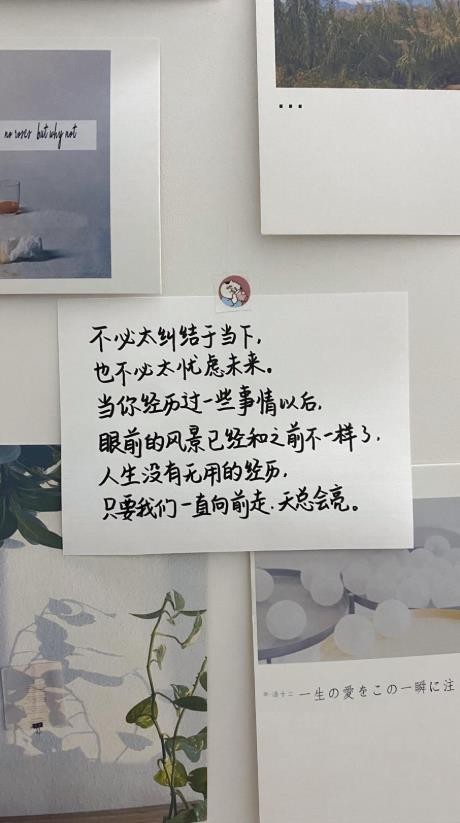 no roses but why not
...
不必太纠结于当下，
也不必太忧虑未来。
当你经历过一些事情以后，
眼前的风景已经和之前不一样了，
人生没有无用的经历，
只要我们一直向前走.天总会亮。
一生の愛をこの一瞬に注